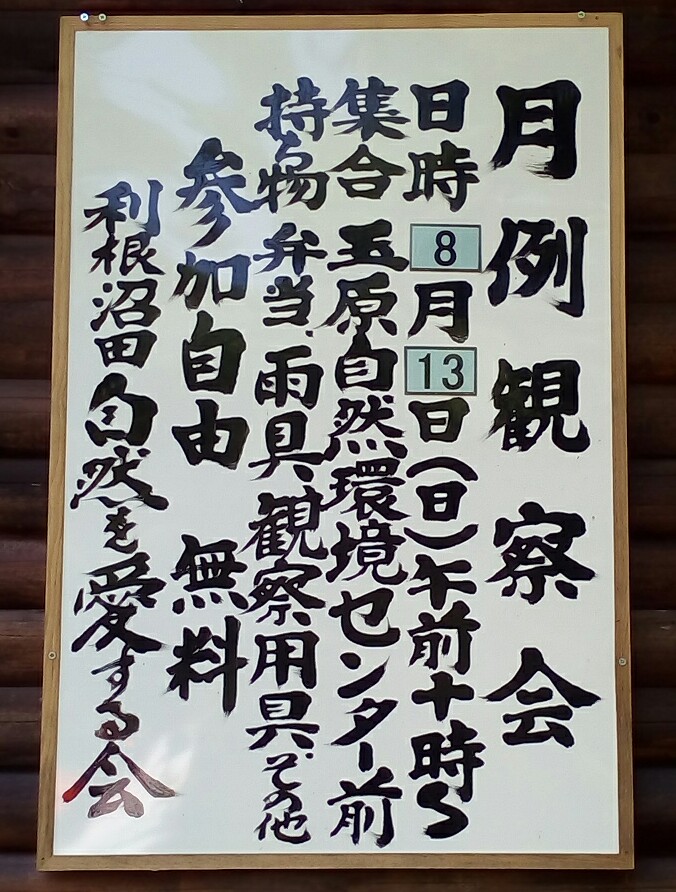 月例観察会
日時 8月13日(日)午前十時〜
集合 玉原自然環境センター前
持る物 弁当、雨具、観察用具その他
参加自由 無料
利根沼田自然を愛する会